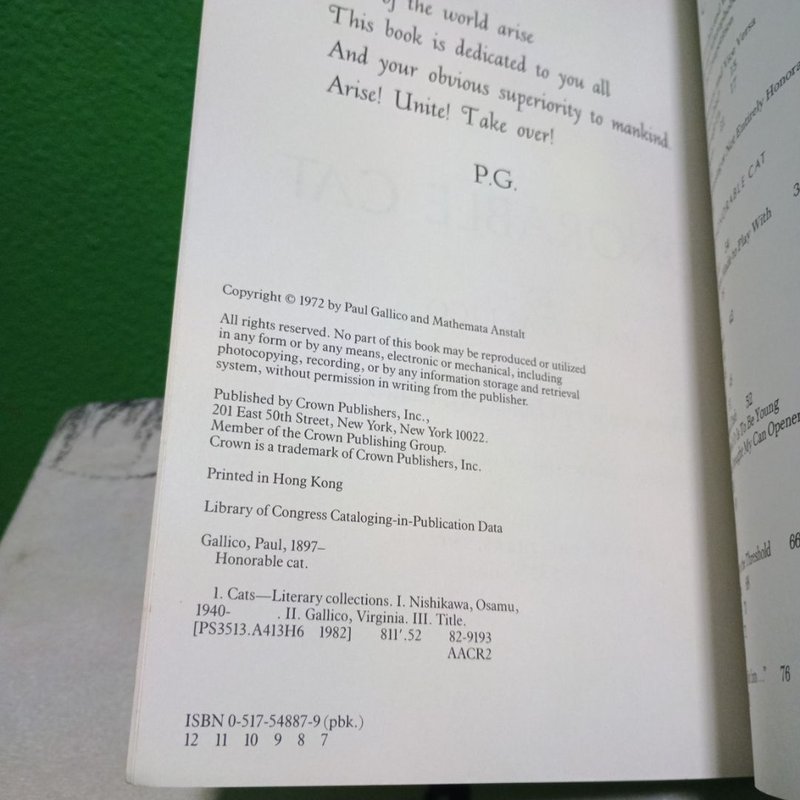 of the world arise
This book is dedicated to you all
And your obvious superiority to mankind
Arise! Unite! Take over!
P.G.
Copyright © 1972 by Paul Gallico and Mathemata Anstalt
All rights reserved. No part of this book may be reproduced or utilized
in any form or by any means, electronic or mechanical, including
photocopying, recording, or by any information storage and retrieval
system, without permission in writing from the publisher.
Published by Crown Publishers, Inc.,
201 East 50th Street, New York, New York 10022.
Member of the Crown Publishing Group.
Crown is a trademark of Crown Publishers, Inc.
Printed in Hong Kong
Library of Congress Cataloging-in-Publication Data
Gallico, Paul, 1897–
Honorable cat.
1. Cats—Literary collections. I. Nishikawa, Osamu,
1940- . II. Gallico, Virginia. III. Title.
[PS3513.A413H6 1982] 811'.52 82-9193
AACR2
ISBN 0-517-54887-9 (pbk.)
12 11 10 9 8 7
Vice Versa
Not Entirely
CAT
to Play With
52
To Be Young
My Can Opener
Threshold 66
76